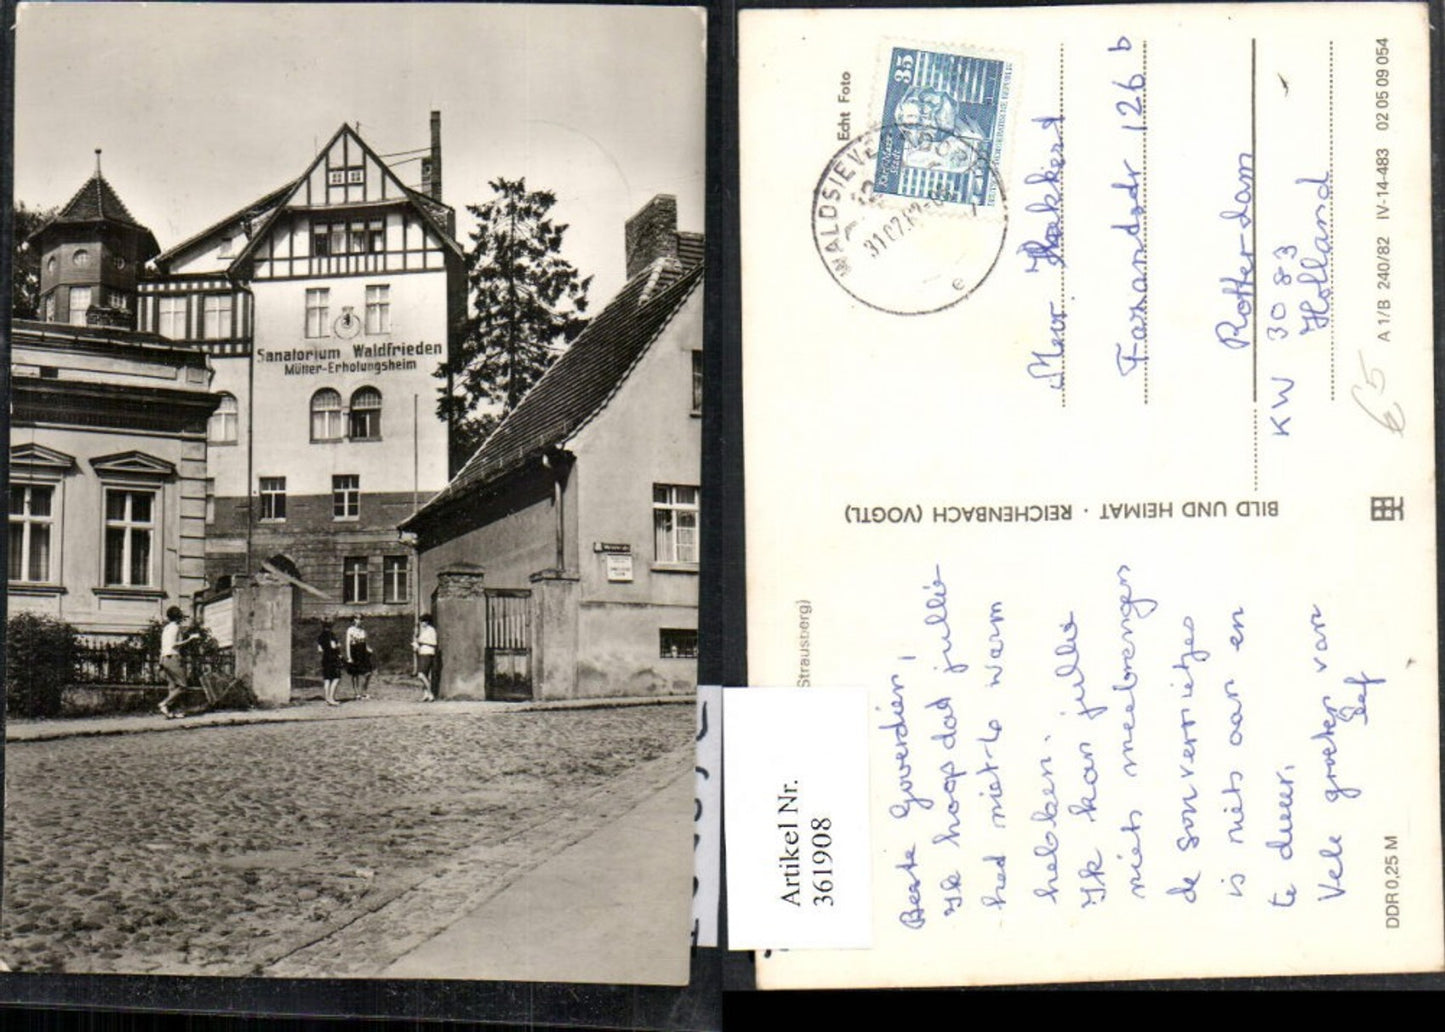 Sanatorium Waldfrieden
Mütter-Erholungsheim
Strausberg)
Artikel Nr.
361908
Beste Goverdien,
Ik hoop dat jullie
het niet te warm
hebben.
Ik kan jullie
niets meebrengen
de
is niets aan en
te duur.
Vele groeten van
DDR 0,25 M
BILD UND HEIMAT · REICHENBACH (VOGTL)
Echt Foto
35
DEMOKRATISCHE REPUBLIK
WALDSIEVERSDORF
31.07.8
e
Hakkert
126 b
Rotterdam
KW 3083
Holland
A 1/B 240/82 IV-14-483 02 05 09 054
€5